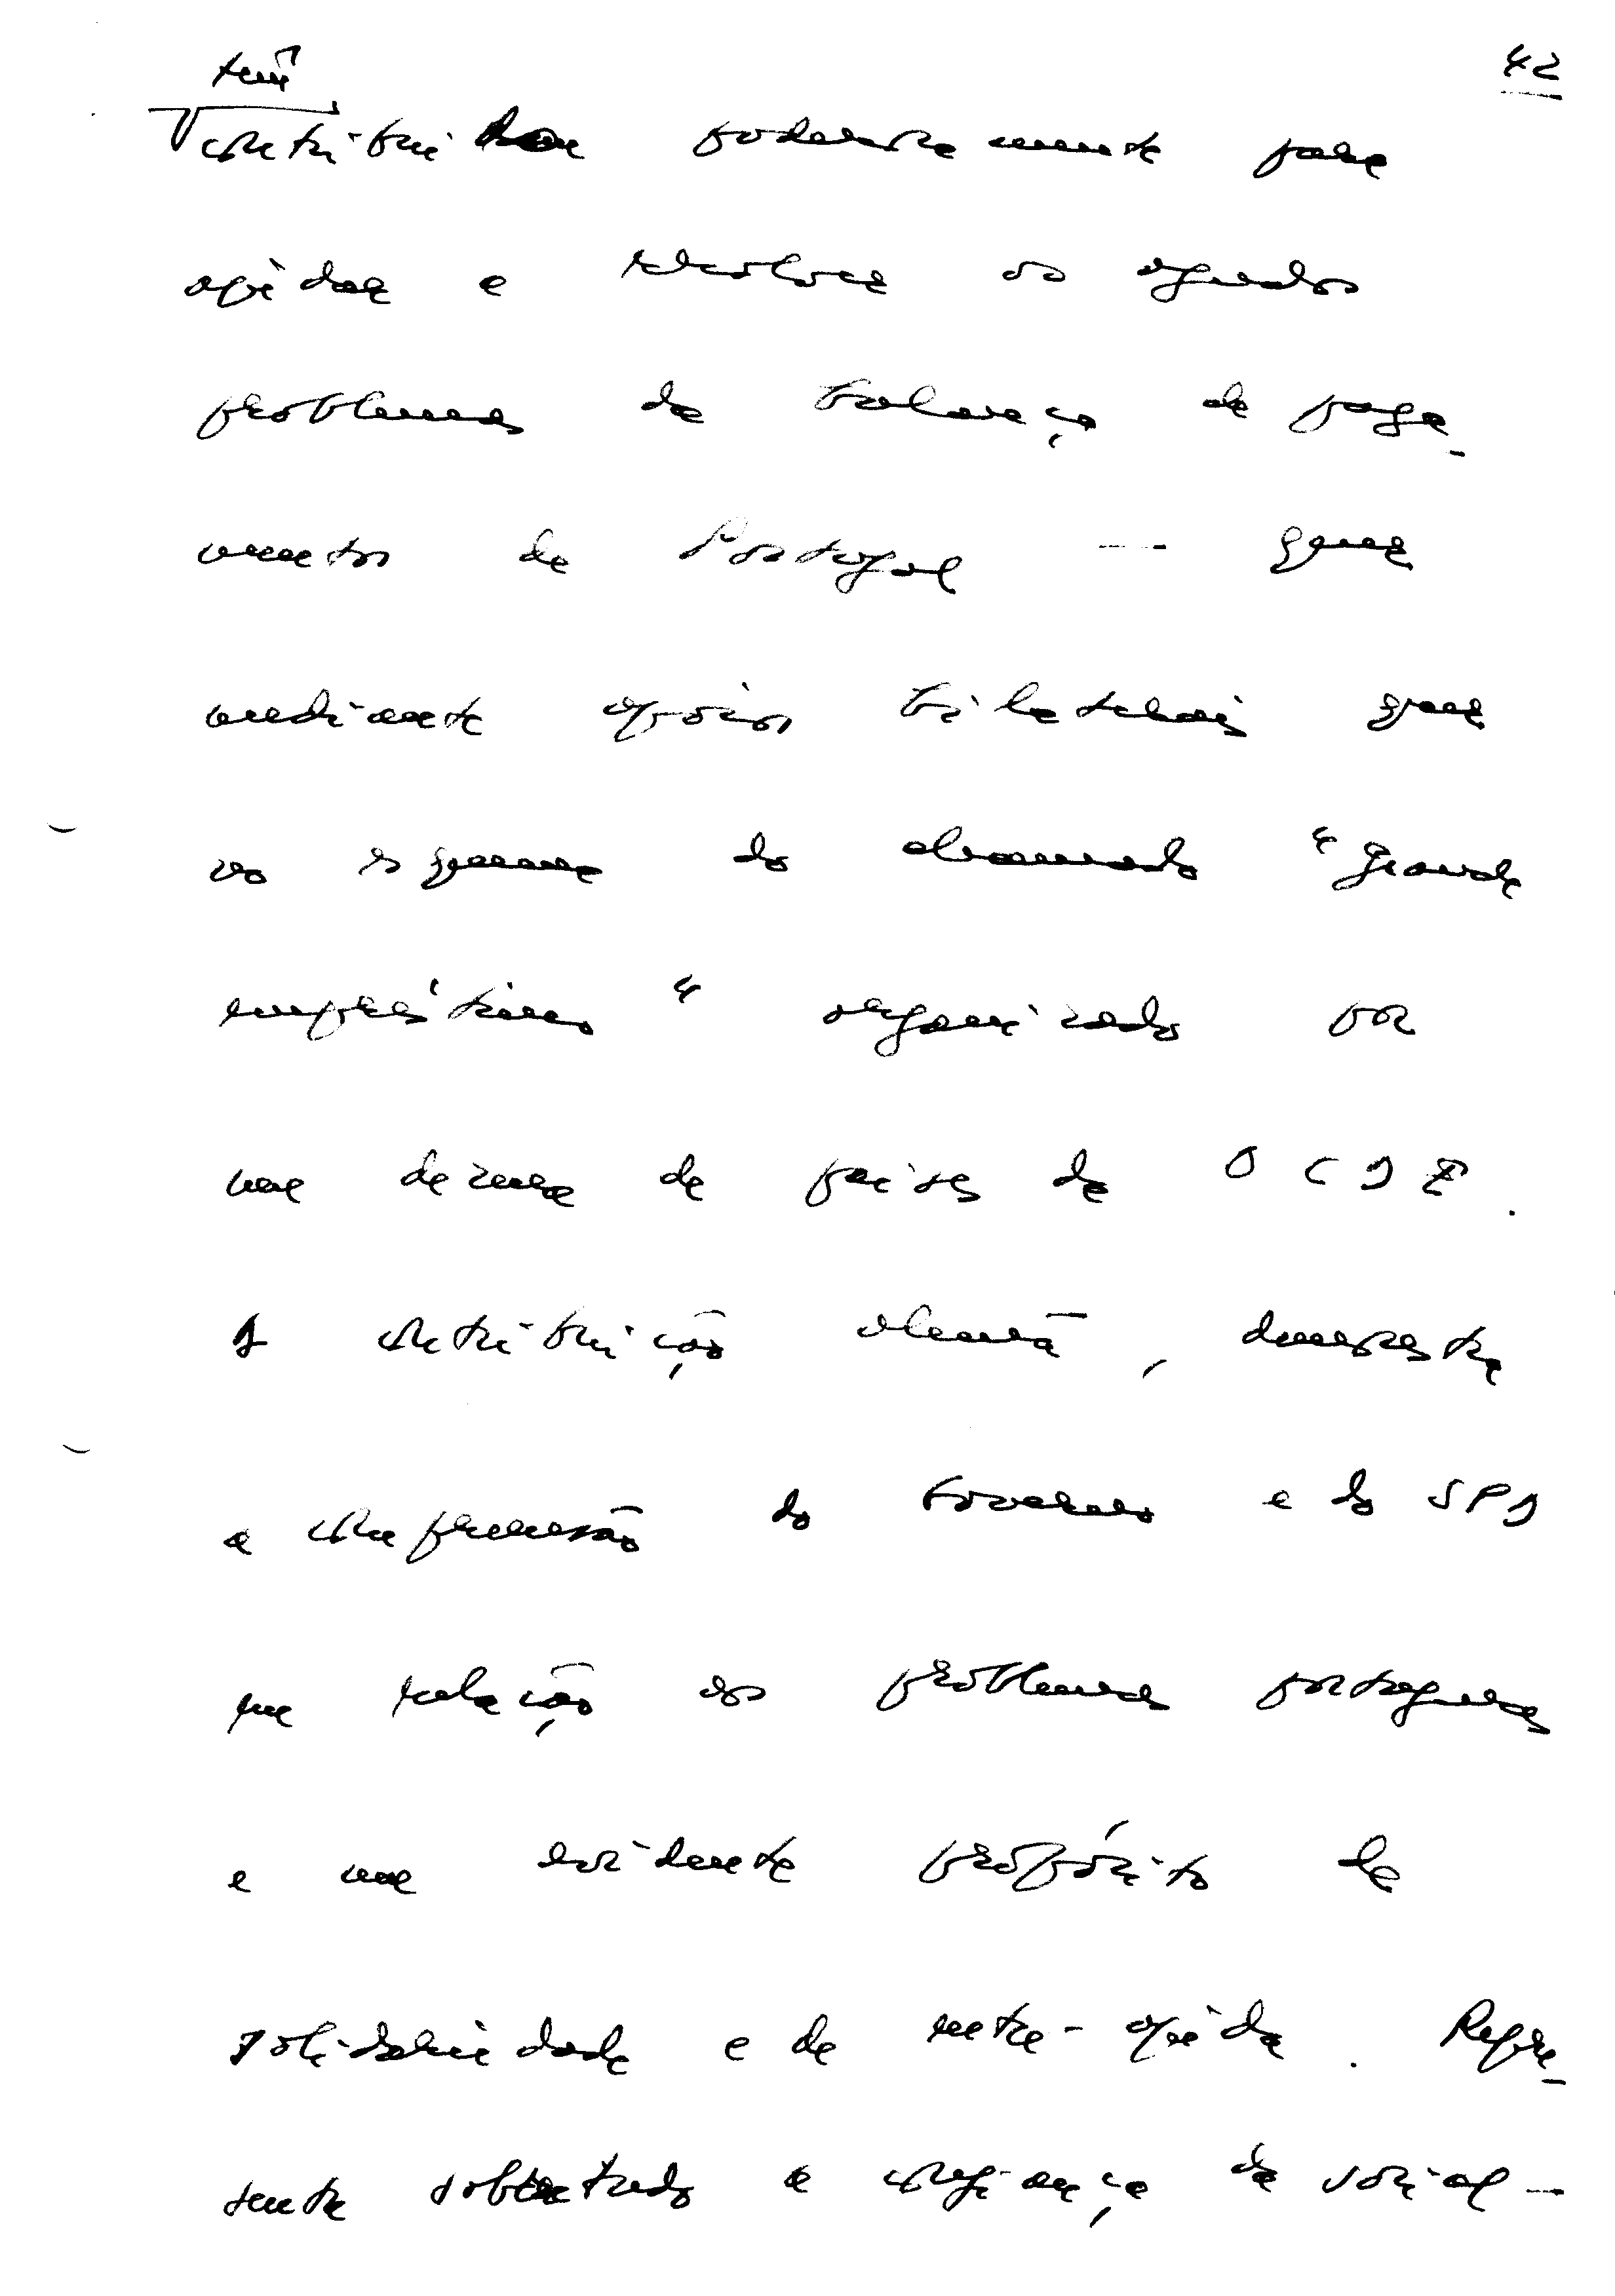 42
têm
contribuido poderosamente para
ajudar a resolver os agudos
problemas da balança de paga-
mentos de Portugal — quer
mediante apoios bilaterais quer
no esquema do chamado "grande
empréstimo" organizado por
uma dezena de países da OCDE.
A contribuição alemã, demonstra
a compreensão do Governo e do SPD
em relação aos problemas portugueses
e um evidente propósito de
solidariedade e de entre-ajuda. Repre-
senta sobretudo a confiança da social-